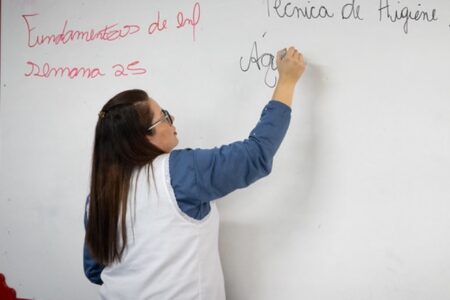 Fundamentos de enf
semana 25
Técnica de Higiene
Águ